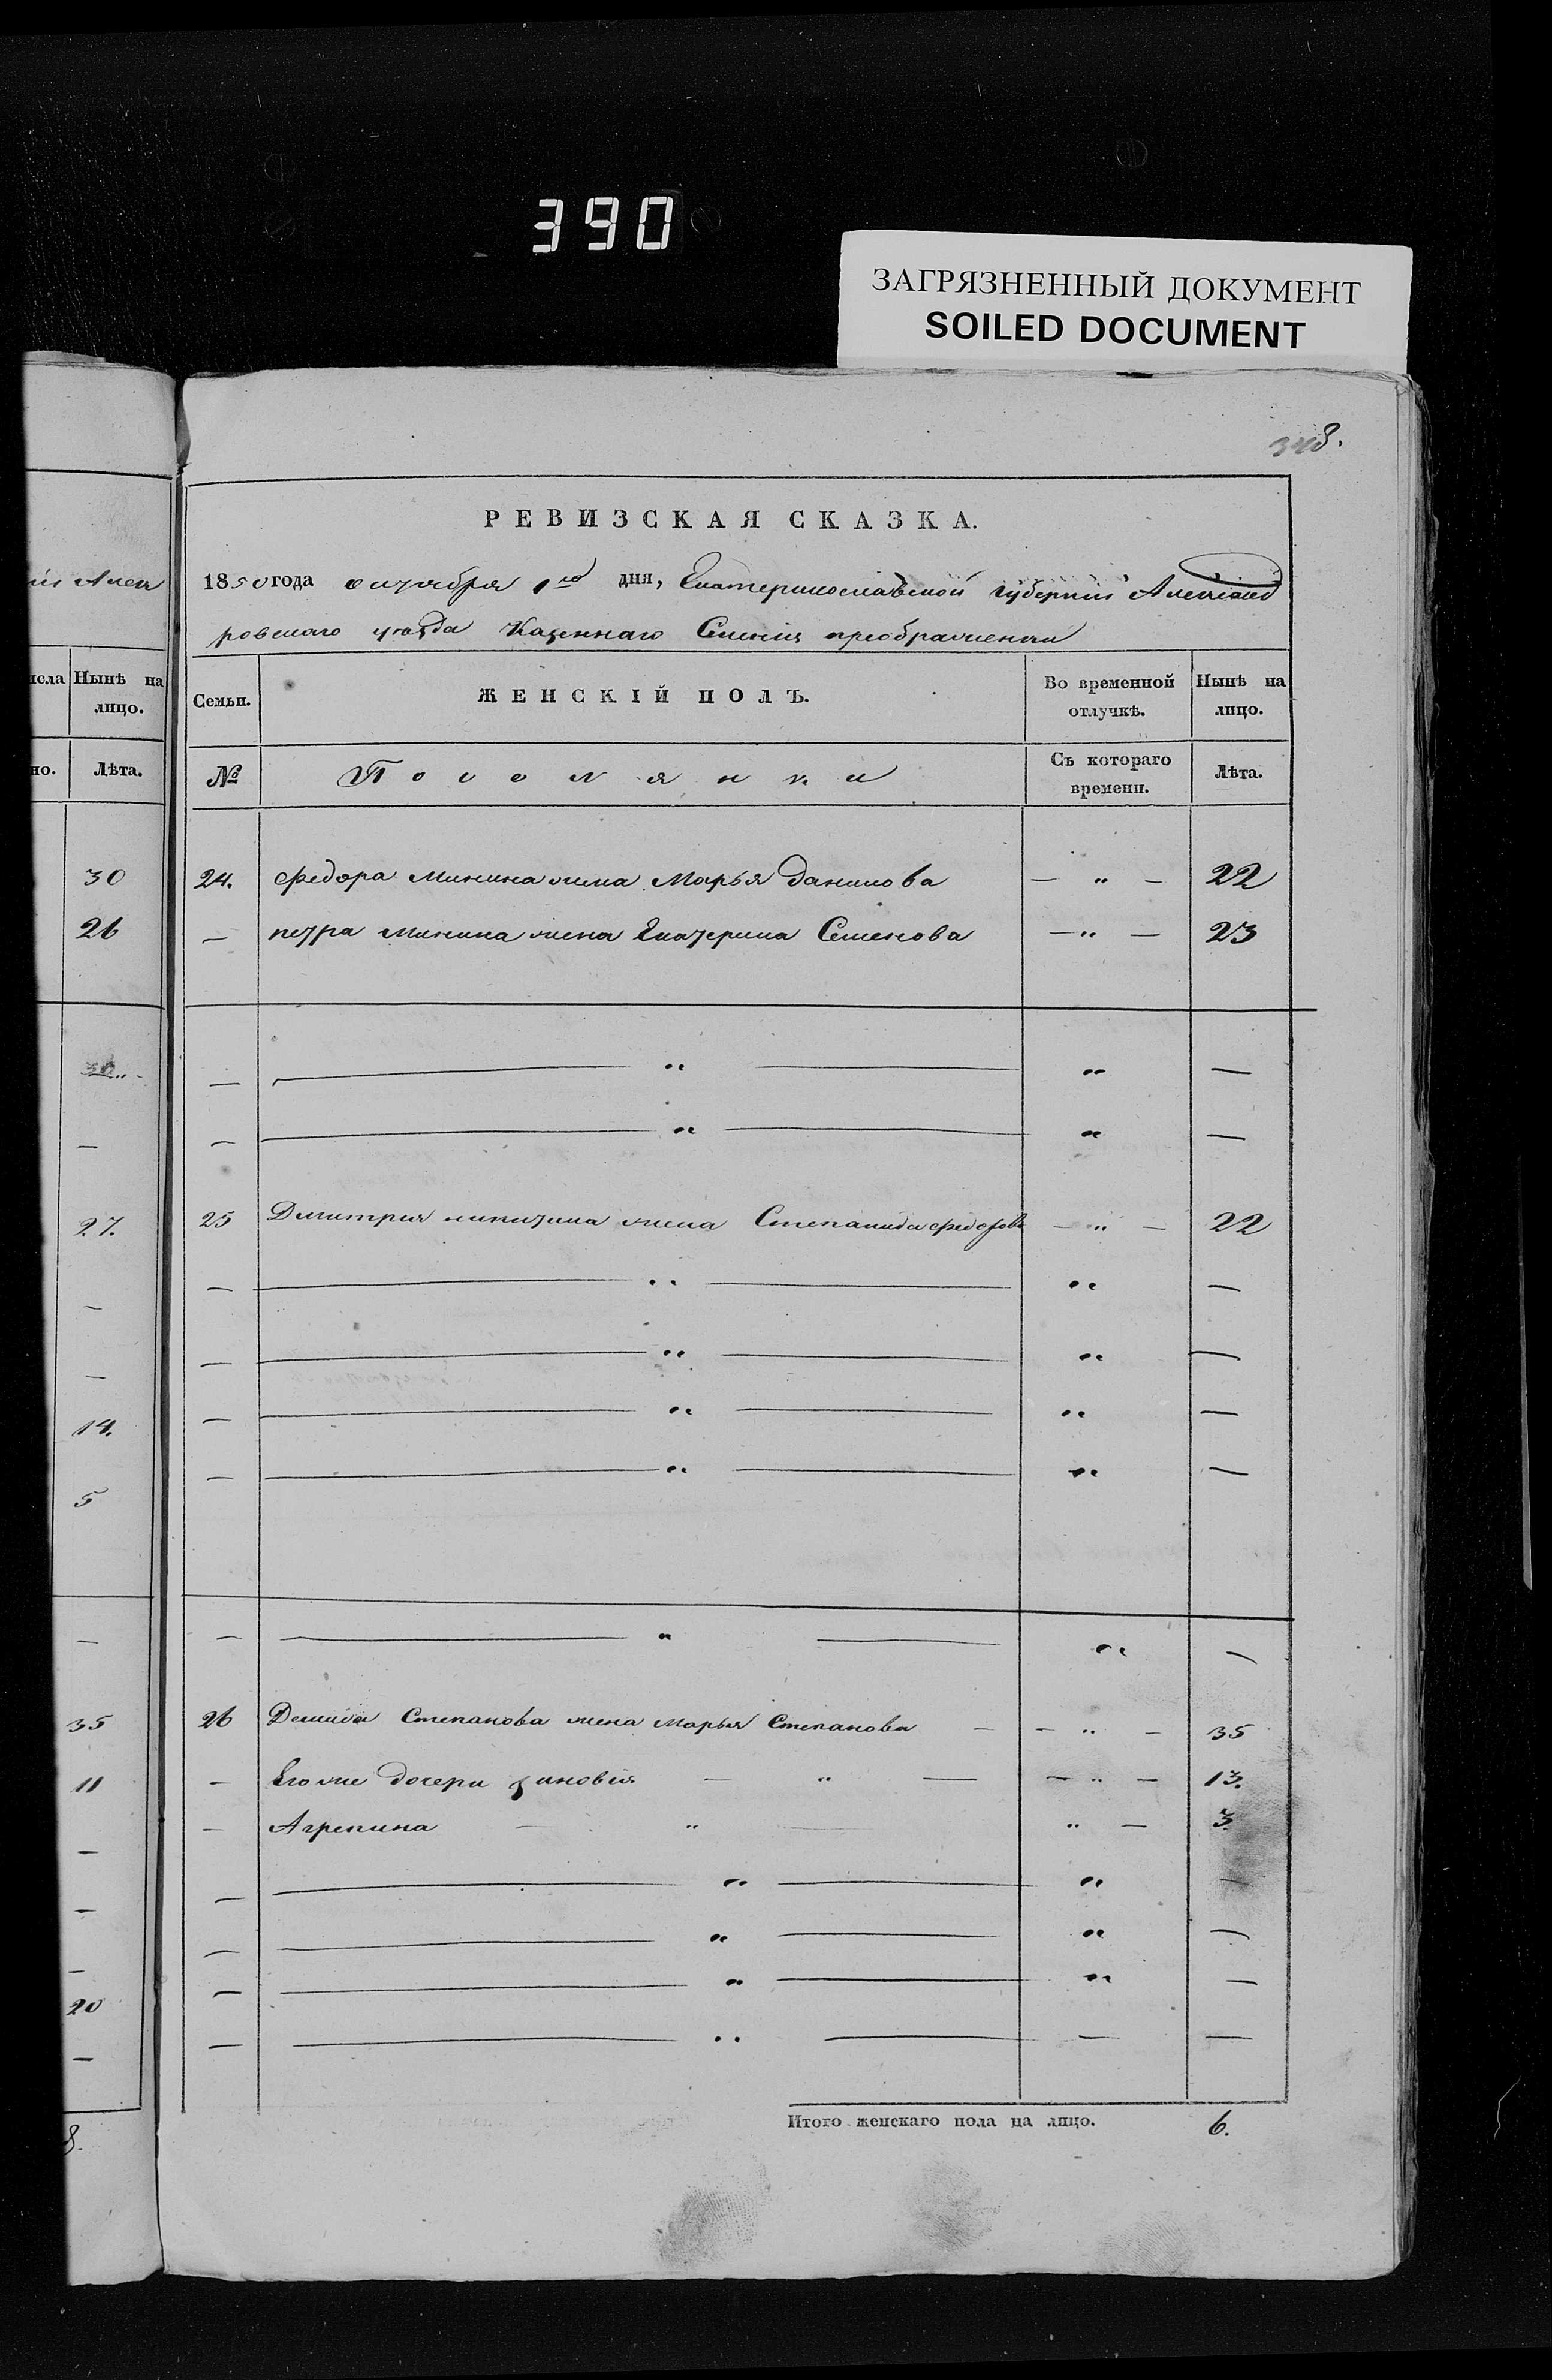 390
ЗАГРЯЗНЕННЫЙ ДОКУМЕНТ
SOILED DOCUMENT
348.
РЕВИЗСКАЯ СКАЗКА.
1850 года октября 1го дня, Екатеринославской губернiи Александ
ровскаго уѣзда Казеннаго Селенiя преображенки
Семьи. ЖЕНСКIЙ ПОЛЪ. Во временной отлучкѣ. Нынѣ на лицо.
№ Поселянки Съ котораго времени. Лѣта.
24. федора Минина жена Марья данилова — „ — 22
— петра Минина жена Екатерина Семенова — „ — 23
— „ — „ —
— „ — „ —
25 Дмитрия никитина жена Степанида федорова — „ — 22
— „ — „ —
— „ — „ —
— „ — „ —
— „ — „ —
— „ — „ —
26 Демида Степанова жена марья Степанова — — „ — 35
— Его же дочери зиновiя — „ — — „ — 13.
— Агрепина — „ — „ — 3
— „ — „ —
— „ — „ —
— „ — „ —
— „ — — —
Итого женскаго пола на лицо. 6.
Алек
исла Нынѣ на лицо.
но. Лѣта.
30
26
—
27.
—
—
14.
5
—
35
11
—
—
—
20
—
8.